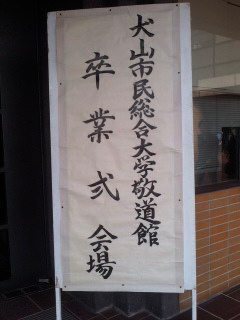 犬山市民総合大学敬道館
卒業式会場